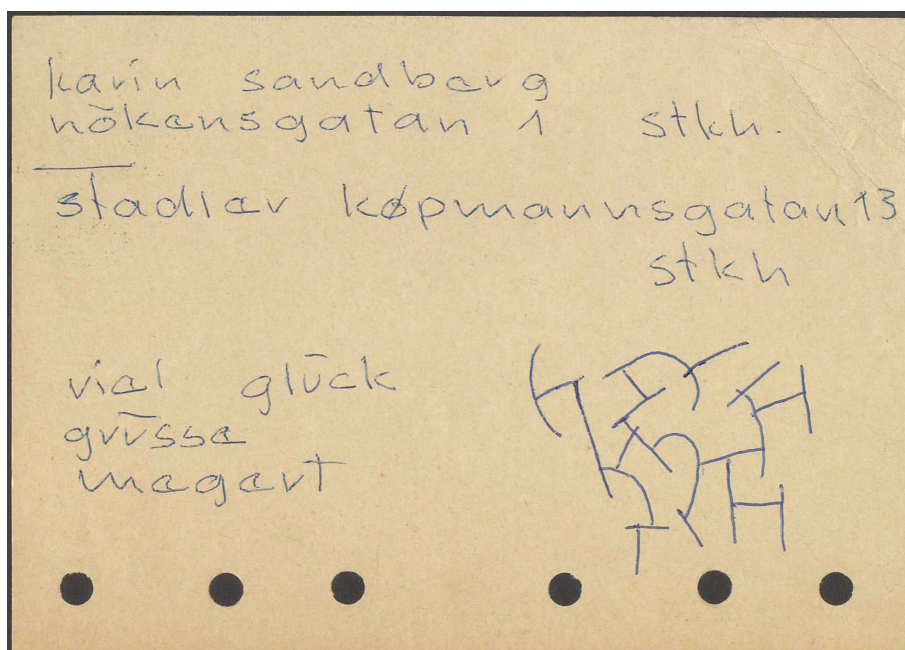 karin sandberg
nökensgatan 1 stkh.
stadler køpmannsgatan 13
stkh
viel glück
grüsse
megert